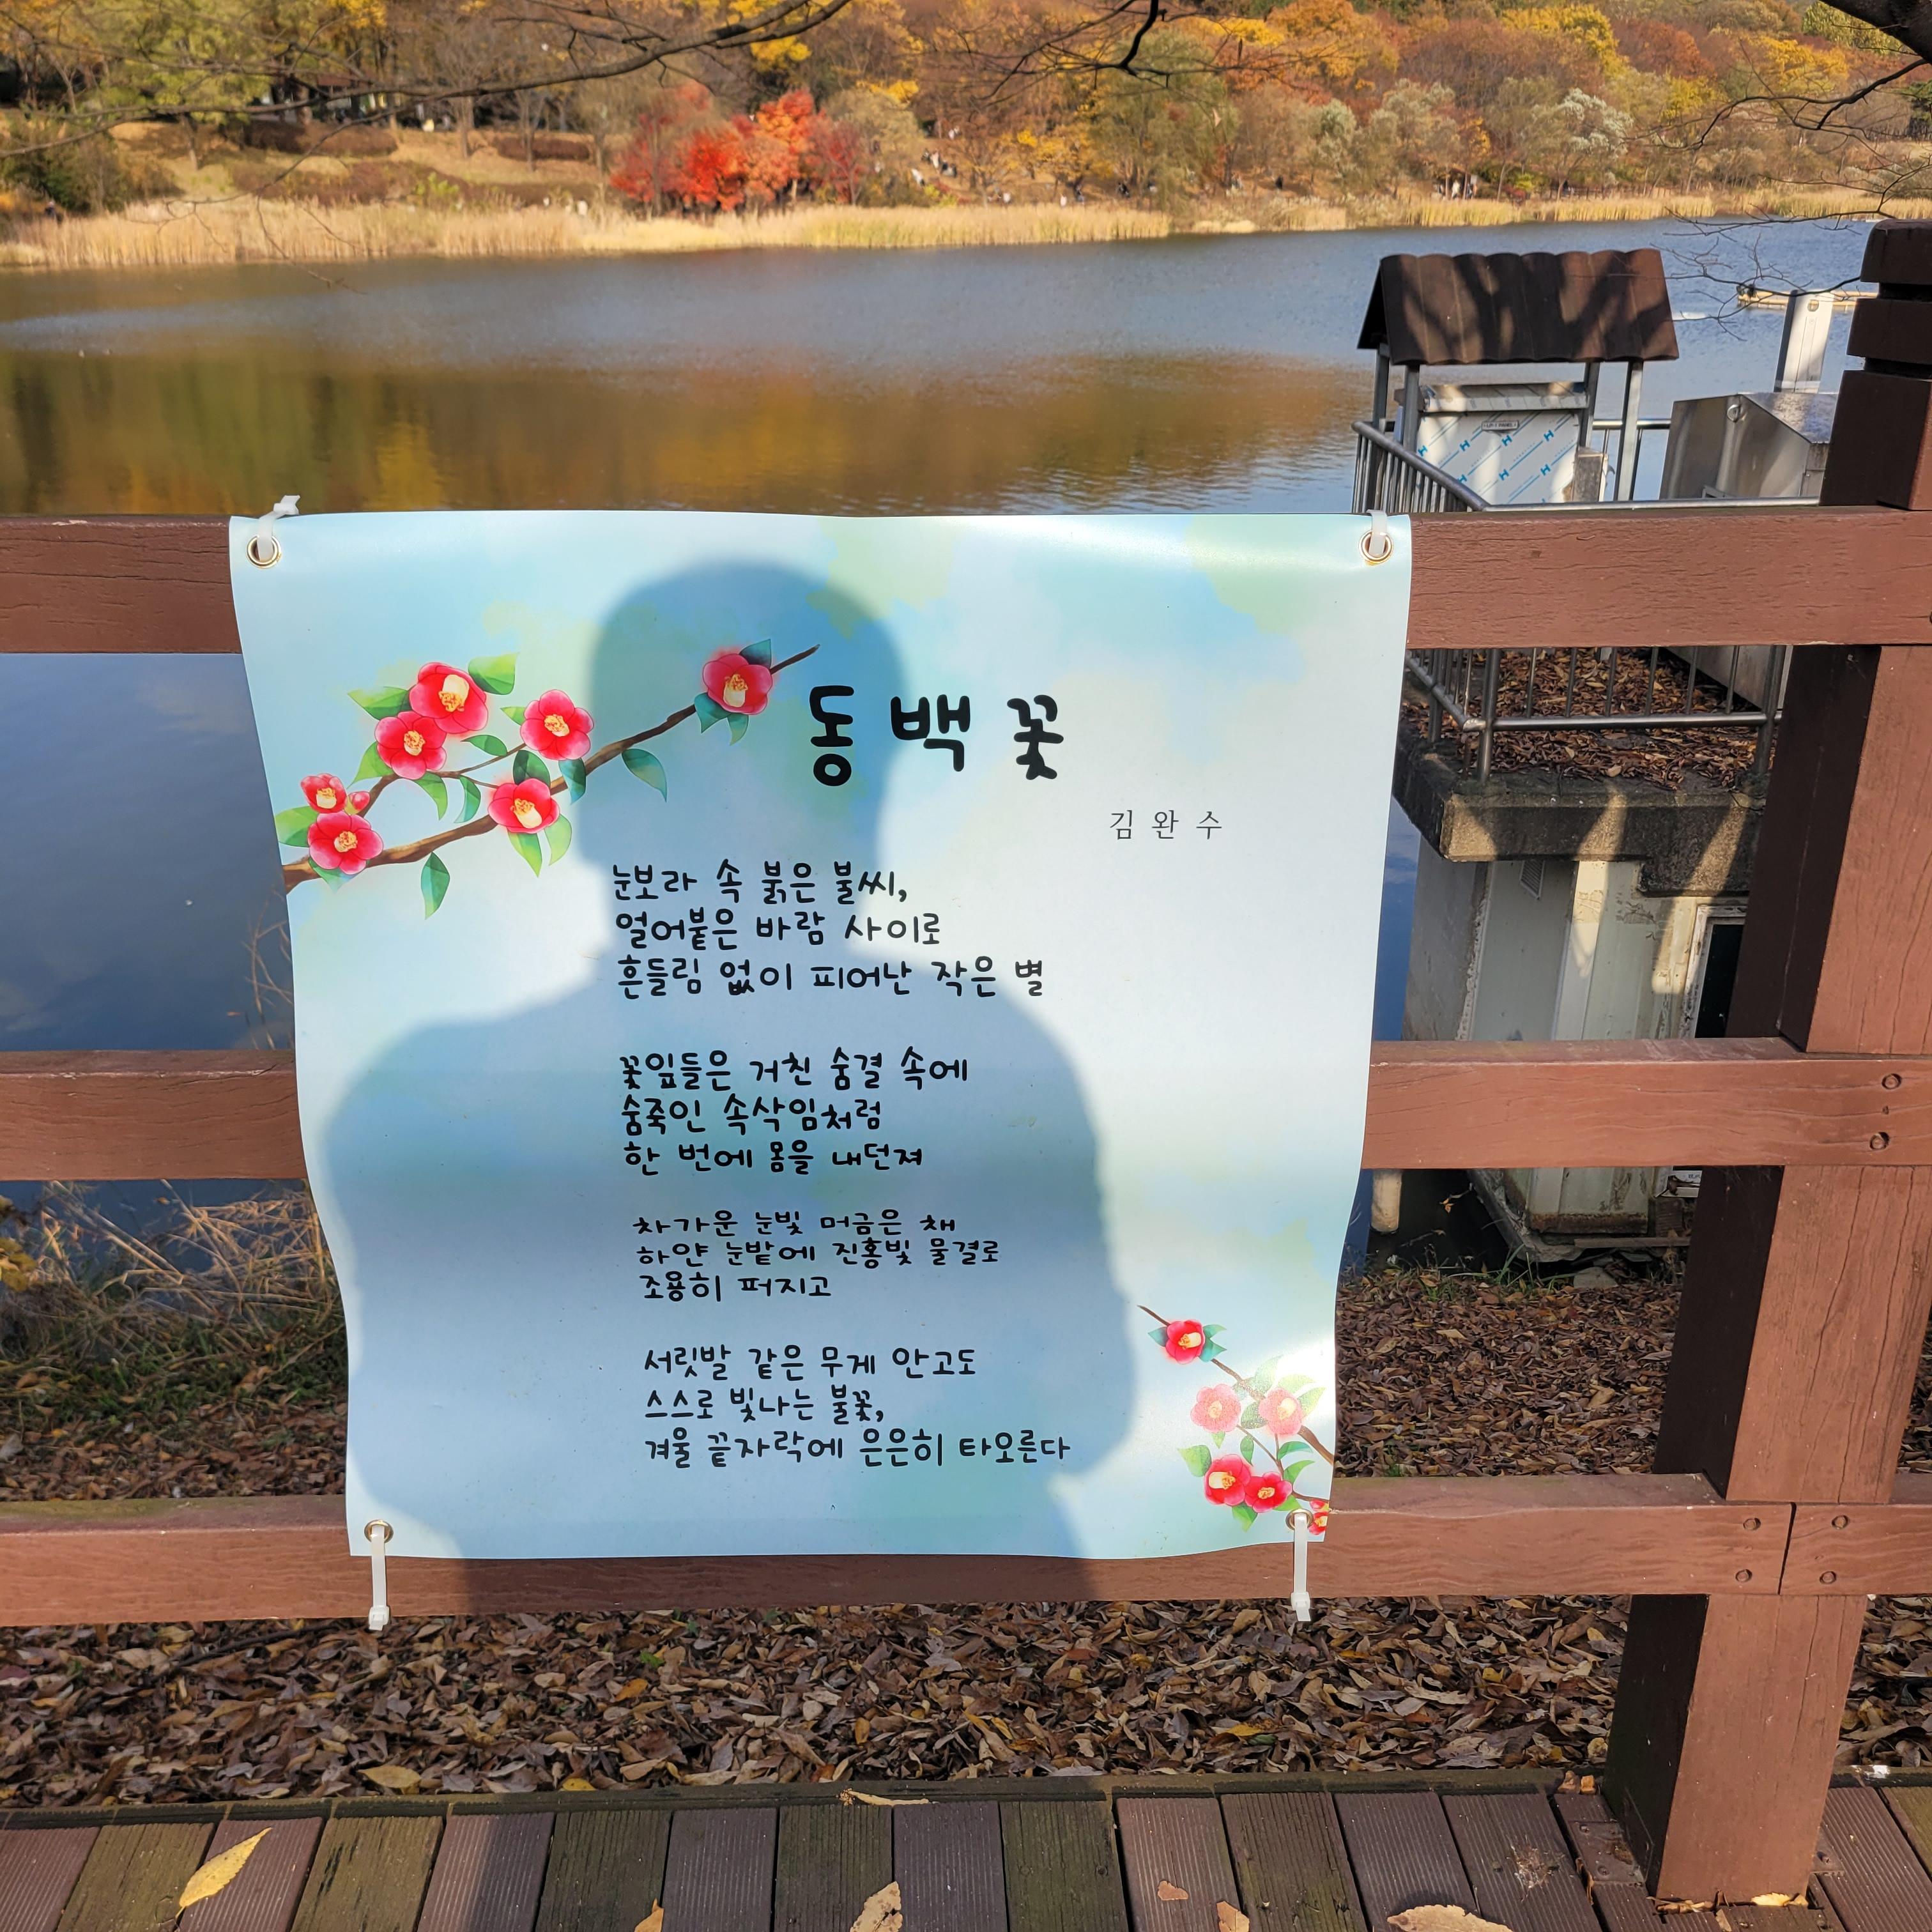 동백꽃
김완수
눈보라 속 붉은 불씨,
얼어붙은 바람 사이로
흔들림 없이 피어난 작은 별
꽃잎들은 거친 숨결 속에
숨죽인 속삭임처럼
한 번에 몸을 내던져
차가운 눈빛 머금은 채
하얀 눈밭에 진홍빛 물결로
조용히 퍼지고
서릿발 같은 무게 안고도
스스로 빛나는 불꽃,
겨울 끝자락에 은은히 타오른다